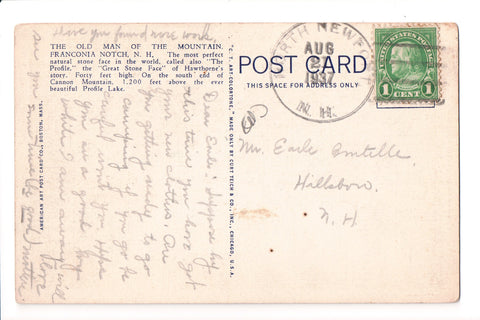 Have you found more work,
THE OLD MAN OF THE MOUNTAIN,
FRANCONIA NOTCH, N. H. The most perfect
natural stone face in the world, called also "The
Profile," the "Great Stone Face" of Hawthorne's
story. Forty feet high. On the south end of
Cannon Mountain, 1,200 feet above the ever
beautiful Profile Lake.
AMERICAN ART POST CARD CO., BOSTON, MASS.
"C. T. ART-COLORTONE," MADE ONLY BY CURT TEICH & CO., INC., CHICAGO, U.S.A.
POST CARD
THIS SPACE FOR ADDRESS ONLY
NORTH NEWPORT
AUG
1937
N. H.
UNITED STATES POSTAGE
1 CENT 1
Dear Earle: Suppose by
this time you have got
your new clothes. Are
you getting ready to go
camping if you go be
careful won't you. Hope
you is a good boy
while I am away. will
see you some time, be good,
love
mother
Mr. Earle
Hillsboro
N. H.